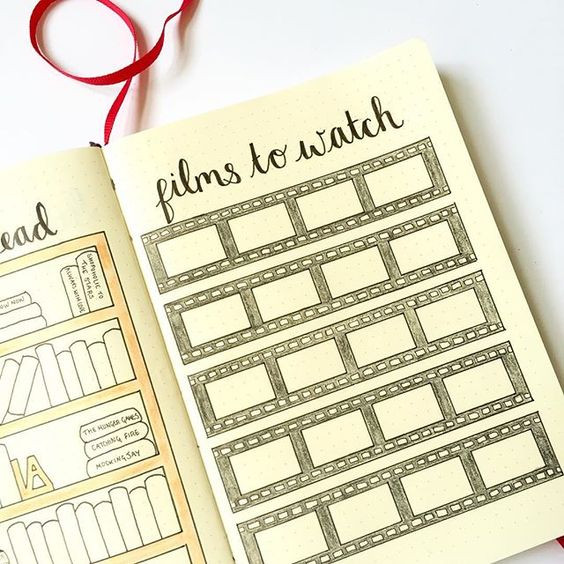 ead
SHOPAHOLIC TO
THE STARS
ALWAYS WITH LOVE
NOW
THE HUNGER GAMES
CATCHING FIRE
MOCKINGJAY
A
films to watch